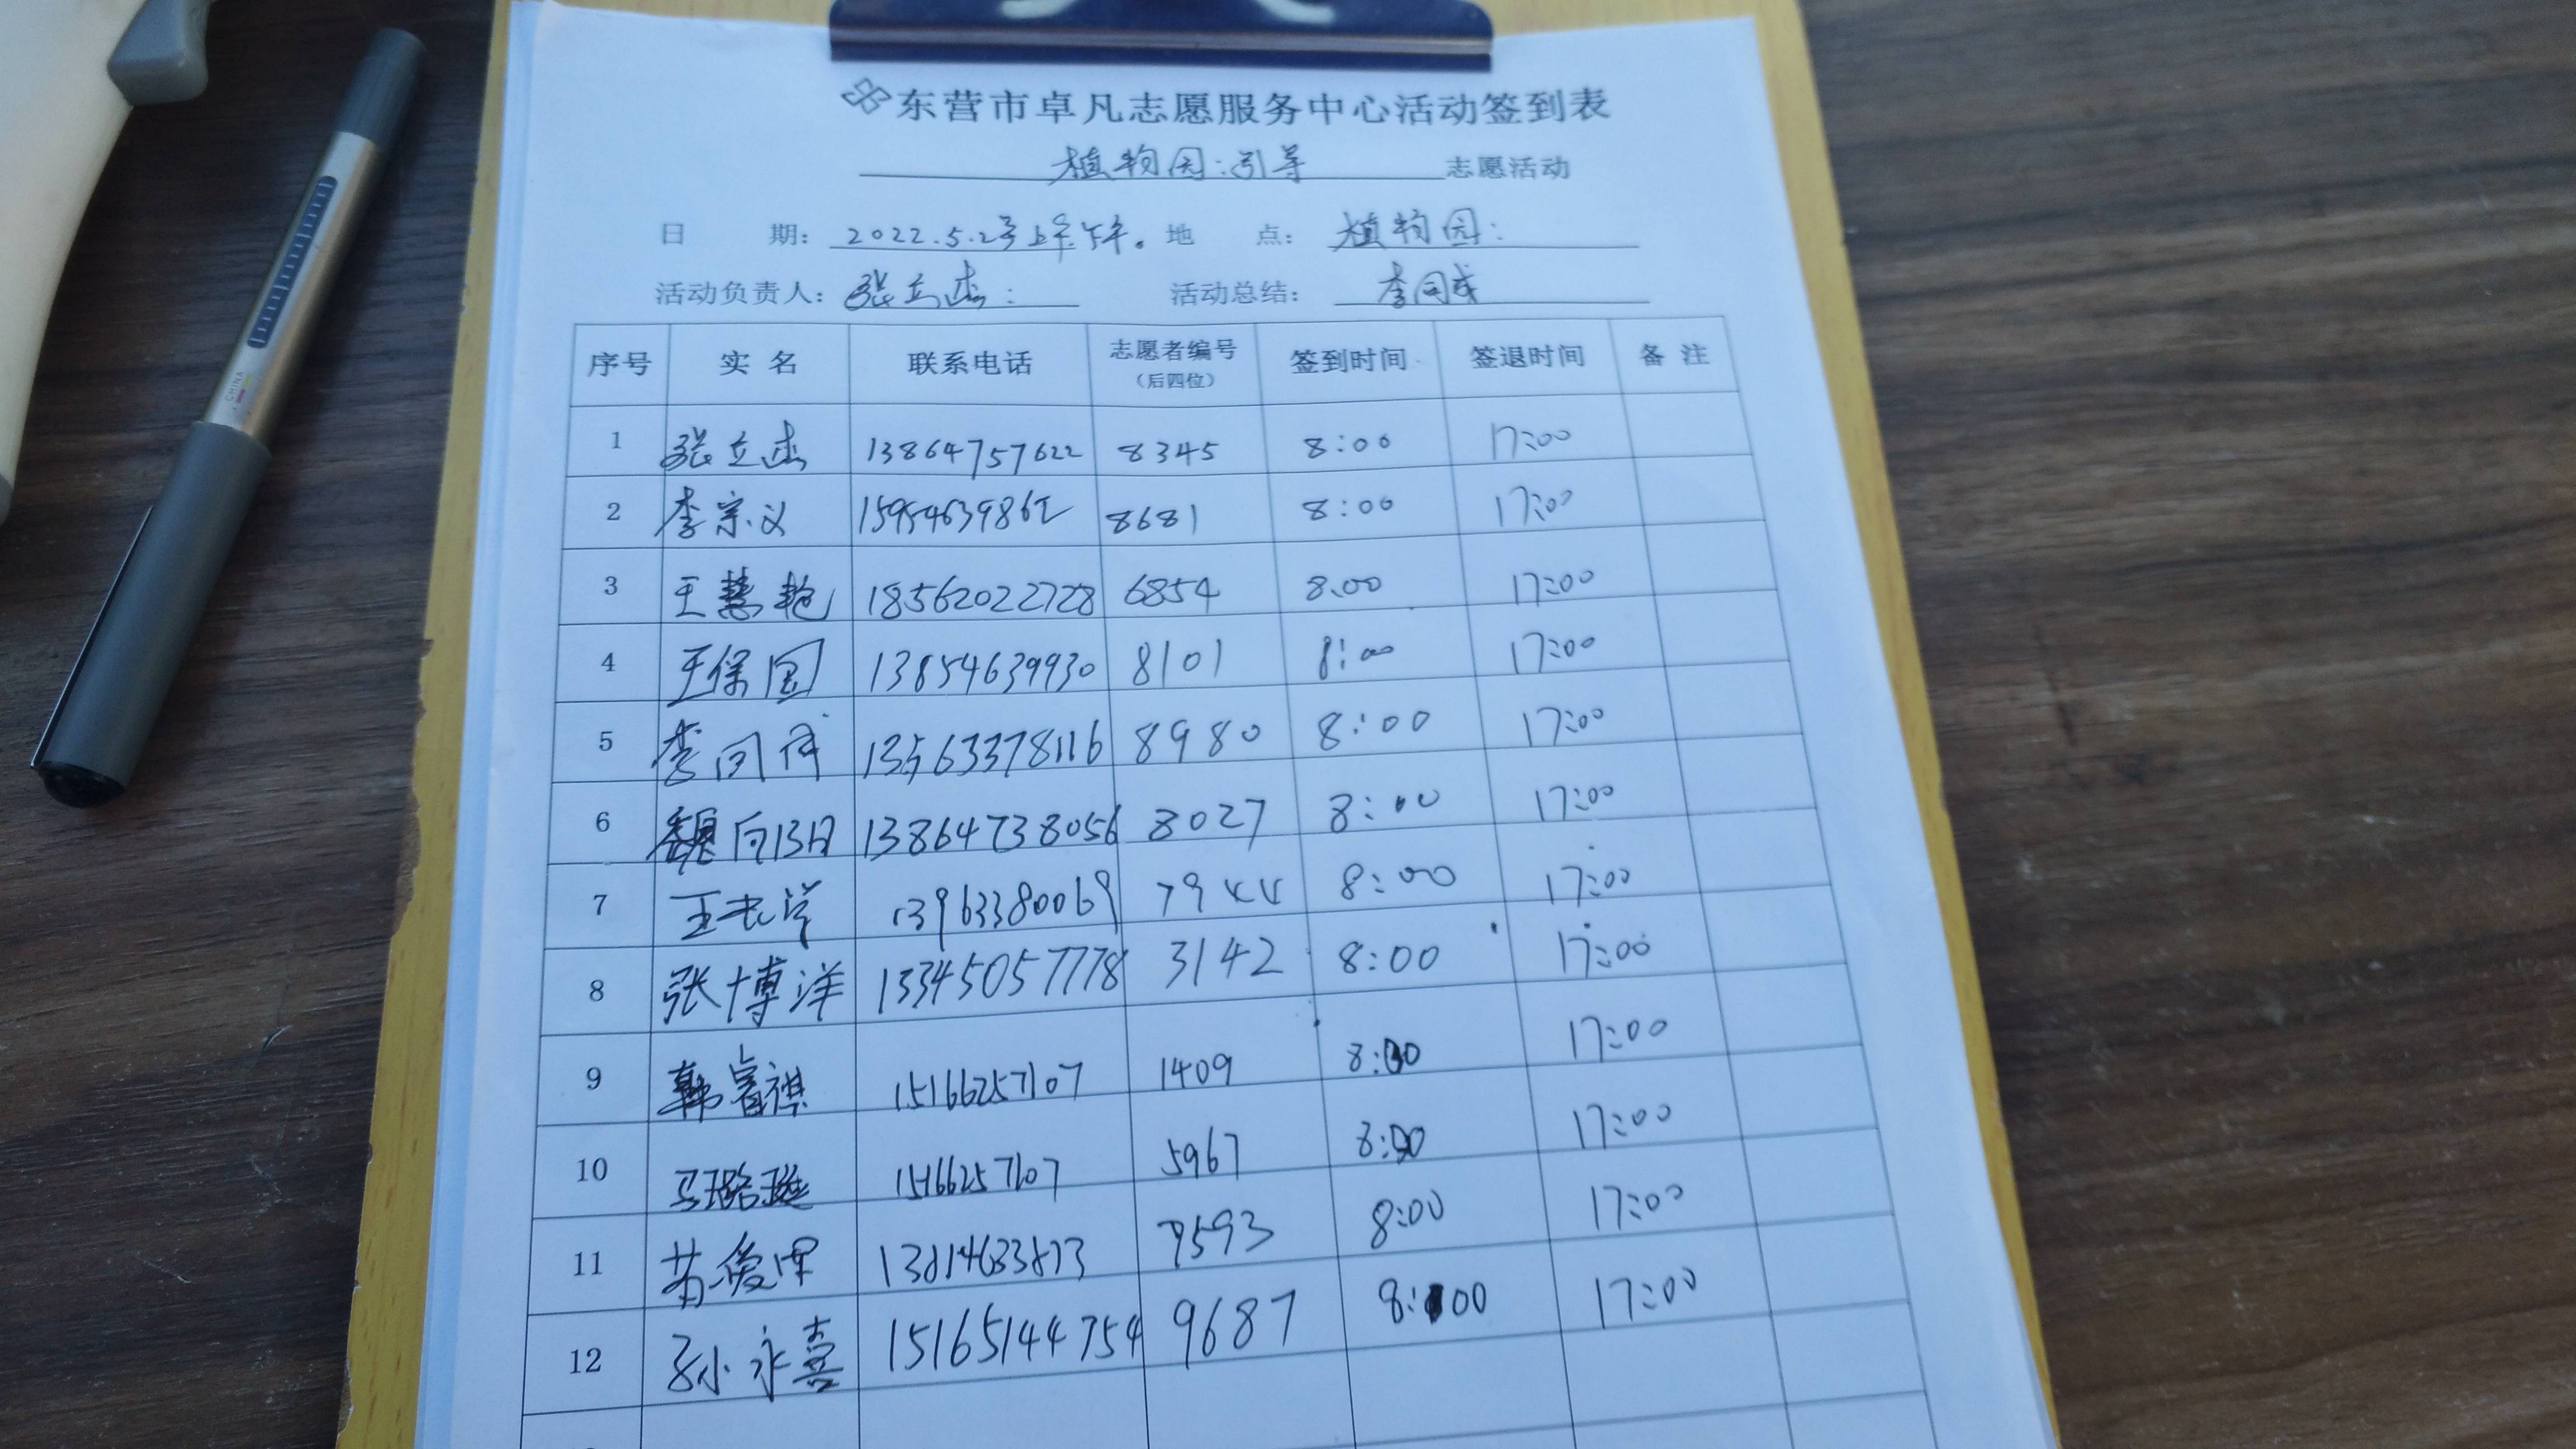 东营市卓凡志愿服务中心活动签到表
植物园:引导 志愿活动
日 期: 2022.5.2号上午下午。 地 点: 植物园:
活动负责人: 张立杰: 活动总结: 李同成
序号 实名 联系电话 志愿者编号(后四位) 签到时间 签退时间 备注
1 张立杰 13864757622 8345 8:00 17:00
2 李宗义 15954639862 8681 8:00 17:00
3 王慧艳 18562022728 6854 8.00 17:00
4 王保国 13854639930 8101 8:00 17:00
5 李同成 13563378116 8980 8:00 17:00
6 魏向阳 13864738056 8027 8:00 17:00
7 王 13963380069 8:00 17:00
8 张博洋 13345057778 3142 8:00 17:00
9 韩睿祺 15166257107 1409 8:00 17:00
10 马璐 15166257107 5967 8:00 17:00
11 9593 8:00 17:00
12 孙永喜 15165144754 9687 8:00 17:00
CHINA